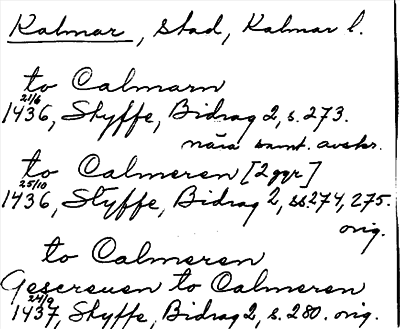 Kalmar, stad, Kalmar l.
to Calmarn
21/6
1436, Styffe, Bidrag 2, s. 273.
nära samt. avskr.
to Calmeren [2 ggr]
25/10
1436, Styffe, Bidrag 2, ss 274, 275.
orig.
to Calmeren
Gescreuen to Calmeren
24/9
1437, Styffe, Bidrag 2, s. 280. orig.